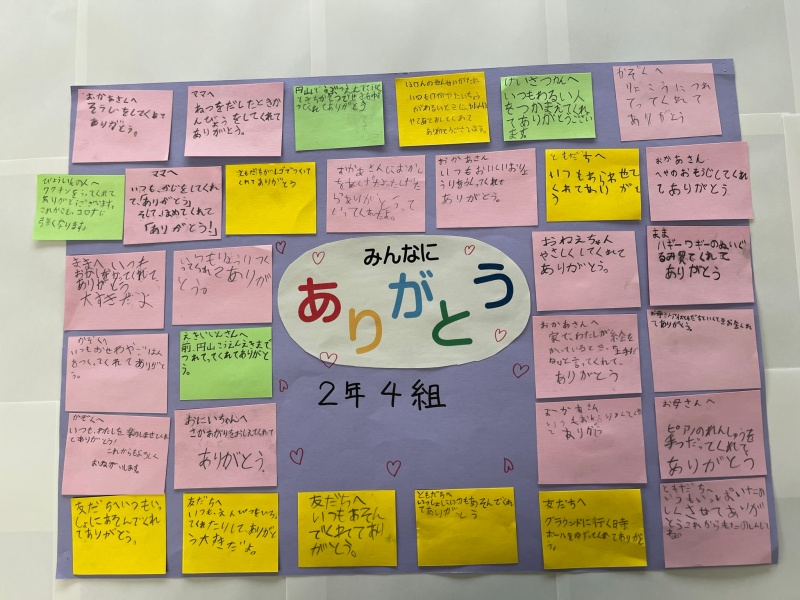 おかあさんへ
そうじをしてくれて
ありがとう。
ママへ
ねつをだしたときか
んびょうをしてくれて
ありがとう。
つれてくれてありがとう
いつも
ありがとうございます。
けいさつかんへ
いつもわるい人
をつかまえてくれて
ありがとうござい
ます。
かぞくへ
りょこうにつれ
てってくれて
ありがとう
びょういんの人へ
ワクチンをうってくれて
ありがとうございます。
これからも、コロナに
気をつけ
ママへ
いつも、かじをしてくれ
て、「ありがとう」
そして、ほめてくれて
「ありがとう!」
くれてありがとう
いってくれたよ。
おかあさん
いつもおいしいおり
うりをつくってくれて
ありがとう。
ともだちへ
いつもわらわせて
くれてありがとう
おかあさん
へやのおもうじしてくれ
てありがとう
ままへ いつも
おかしをかってくれて、
ありがとう
大すきだよ
いつもりょうりつく
ってくれてありが
とう。
みんなに
ありがとう
おねえちゃん
やさしくしてくれて
ありがとう。
まま
ハギーワギーのぬいぐ
るみ買てくれて
ありがとう
かぞくへ
いつもおせわやごはん
をつくってくれてありが
とう。
えきいんさんへ
前、円山こうえんえきまで
つれて、てくれてありがと
う。
2年4組
おかあさんへ
家で、わたしが絵を
かいているとき、上手だ
ねって言ってくれて、
ありがとう
てありがとう
かぞくへ
いつも、わたしを楽しませてくれ
てありがとう!
これからもよろしく
おねがいします
おにいちゃんへ
さかあがりをおしえてくれて
ありがとう。
おかあさん
ありがとう
お母さんへ
ピアノのれんしゅうを
手つだってくれて、
ありがとう
友だちへいつもいっ
しょにあそんでくれ
てありがとう。
友だちへ
いつも、
くれたりして、ありがと
う大すきだよ。
友だちへ
いつもあそん
でくれてあり
がとう。
ともだちへ
いっしょにいつもあそんでくれ
てありがとう
友だちへ
グラウンドに行く時
ボールをゆずってくれてありがと
う。
ともだちへ
しくさせてありが
とうこれからもたのしんでい